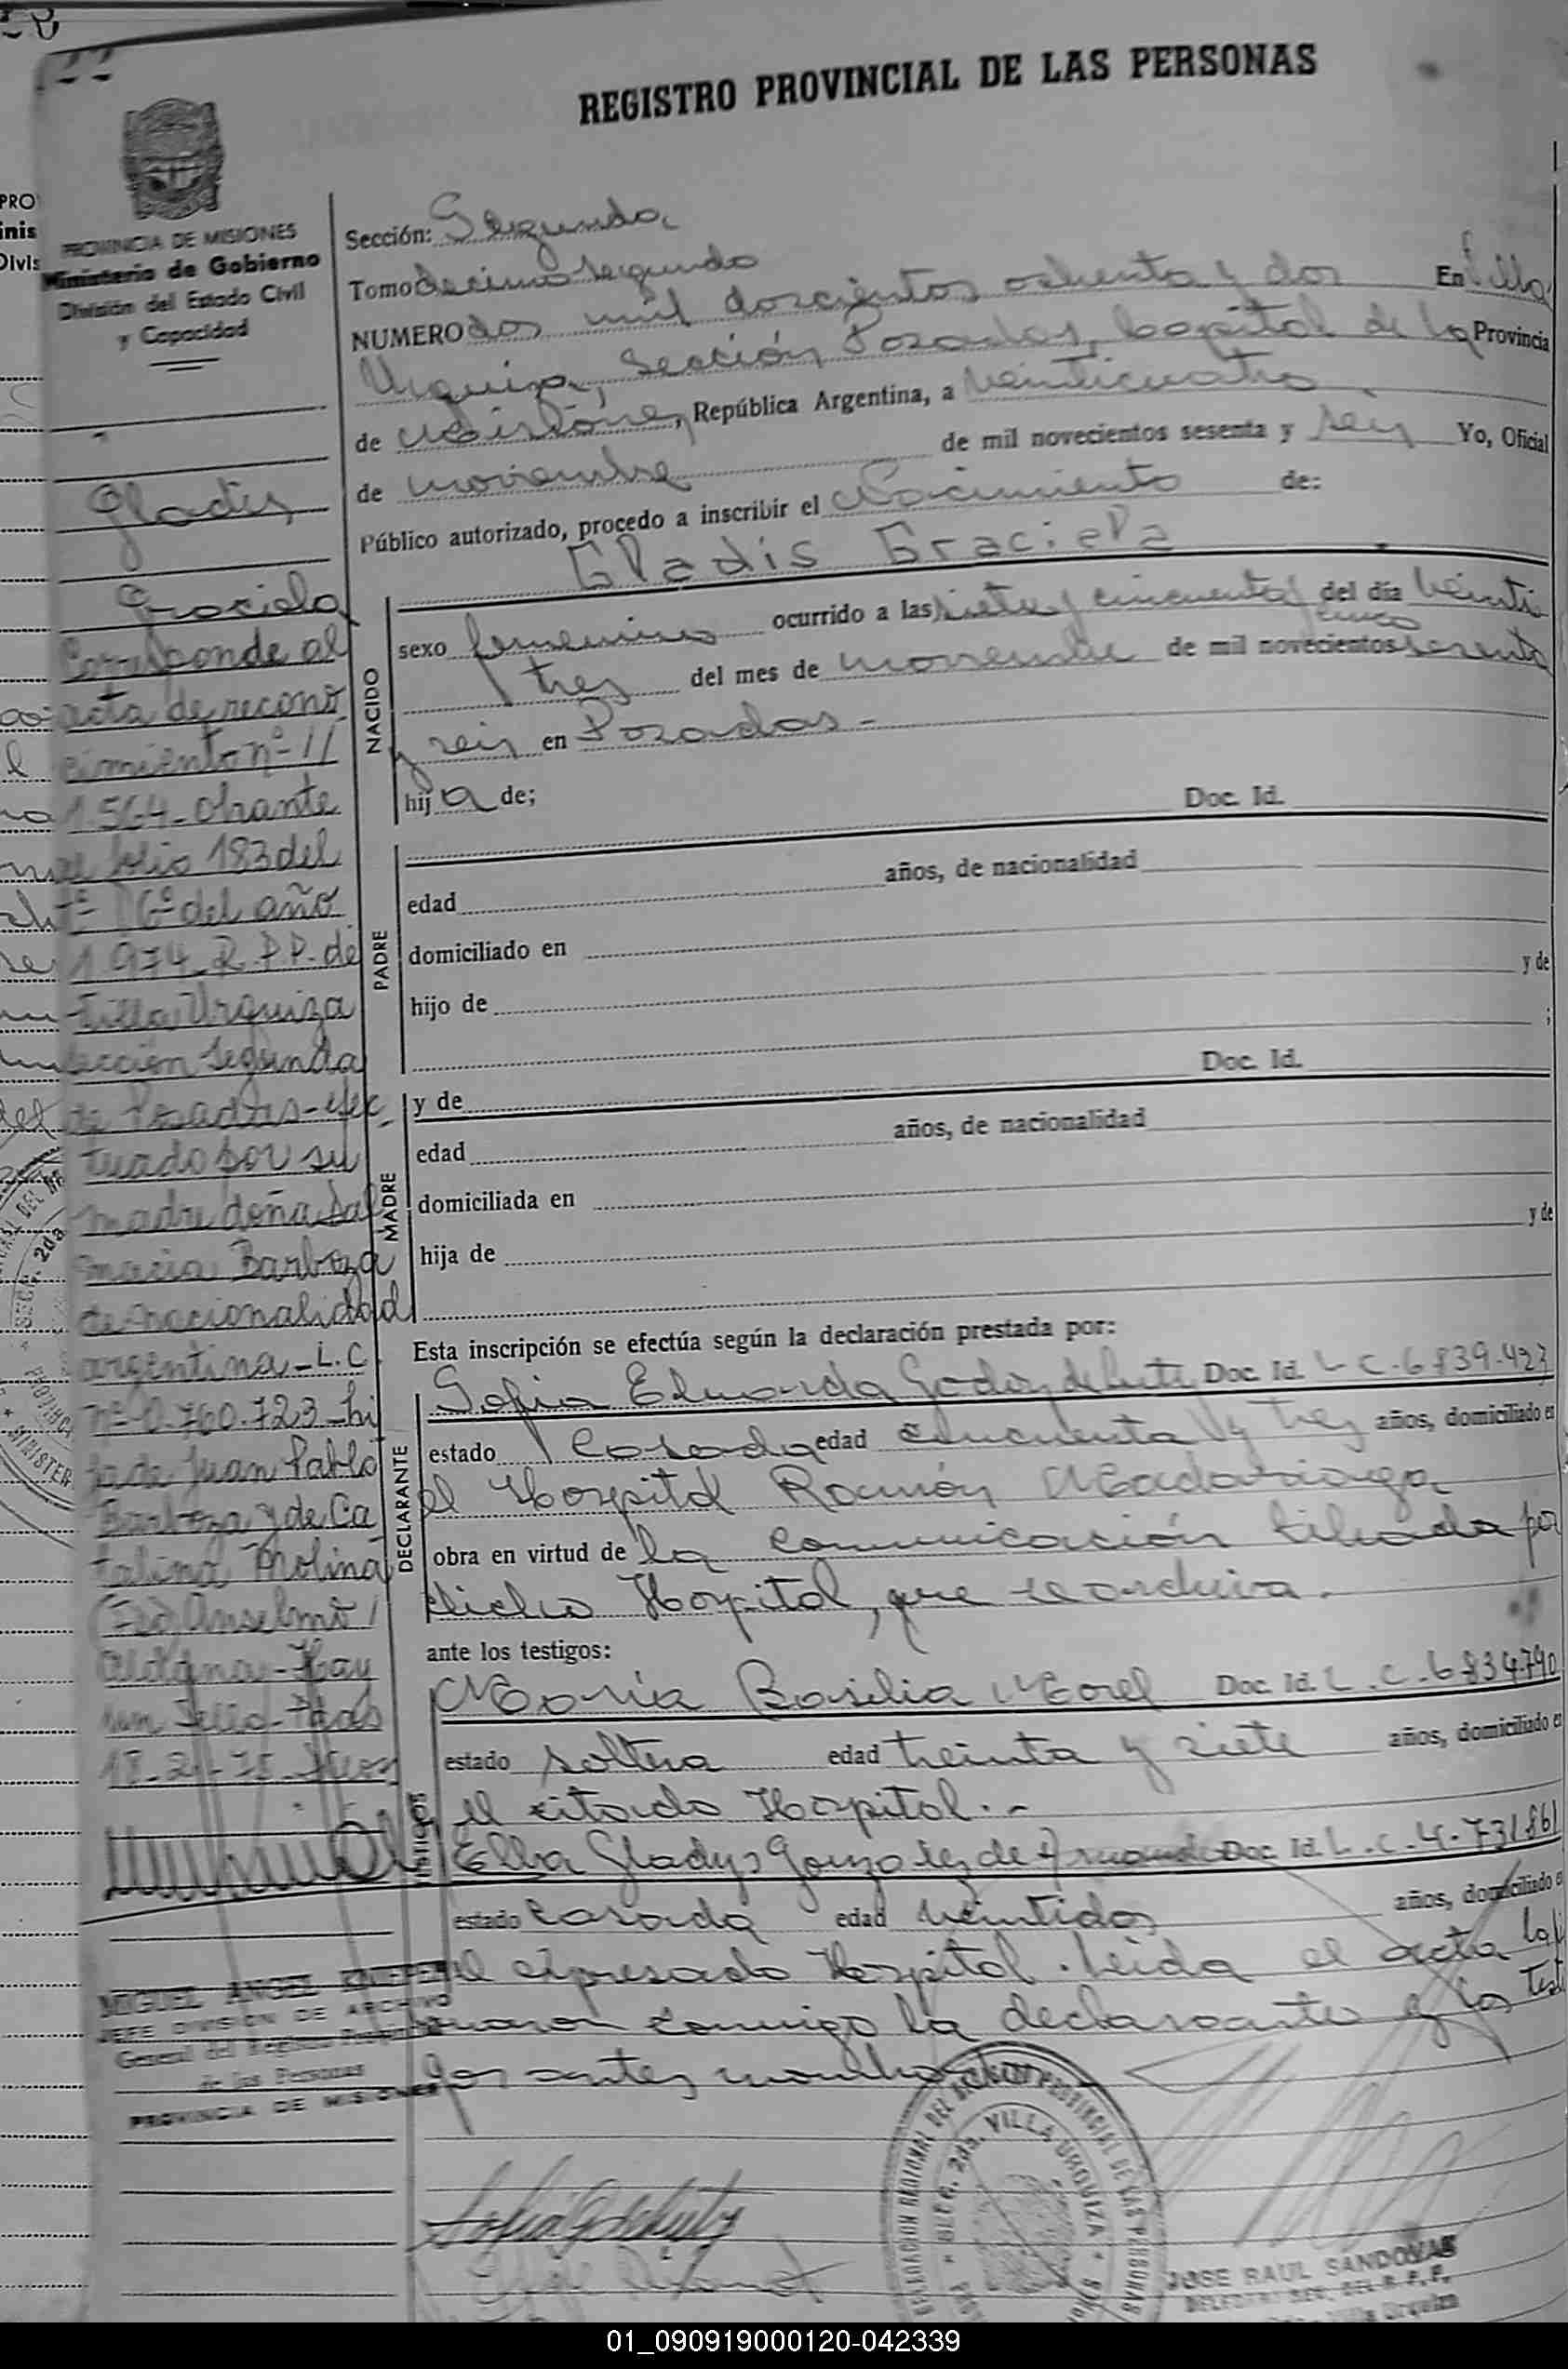 REGISTRO PROVINCIAL DE LAS PERSONAS
PROVINCIA DE MISIONES
Ministerio de Gobierno
División del Estado Civil
y Capacidad
Sección: Segunda
Tomo decimo segundo
NUMERO dos mil doscientos ochenta y dos En Villa
Urquiza, Sección Posadas, Capital de la Provincia
de Misiones, República Argentina, a veinticuatro
de noviembre de mil novecientos sesenta y seis Yo, Oficial
Público autorizado, procedo a inscribir el Nacimiento de:
Gladis Graciela
NACIDO
sexo femenino ocurrido a las siete y cincuenta y cinco del día veinti
tres del mes de noviembre de mil novecientos sesenta
y seis en Posadas -
hija de;
Doc. Id.
PADRE
edad años, de nacionalidad
domiciliado en
hijo de y de
;
Doc. Id.
MADRE
y de
edad años, de nacionalidad
domiciliada en
hija de y de
Esta inscripción se efectúa según la declaración prestada por:
DECLARANTE
Sofia Eduarda Godoy de Doc. Id. L-C-6839.423
estado Casada edad cincuenta y tres años, domiciliado en
el Hospital Ramón Madariaga
obra en virtud de la comunicación librada por
dicho Hospital, que se archiva.
ante los testigos:
TESTIGOS
María Basilia Morel Doc. Id. L.C-6834.790
estado soltera edad treinta y siete años, domiciliado en
el citado Hospital.-
Elba Gladys Gonzalez de Doc. Id. L.C-4.731861
estado casada edad veintidos años, domiciliado en
el expresado Hospital. Leida el acta la
conmigo la declarante y los testi
gos antes
Gladis
Graciela
Corresponde al
acta de recono
cimiento nº 11
1.564- obrante
al folio 183 del
tº 16º del año
1974 R.P.P. de
Villa Urquiza
sección segunda
de Posadas- efec
tuado por su
madre doña Sal
macia Barboza
de nacionalidad
argentina- L.C.
nº 0.760.723- hi
ja de Juan Pablo
Barboza y de Ca
talina Molina
(Fdo) Anselmo
Aldana- Hay
un sello- Pdas
18-2-75
MIGUEL ANGEL
JEFE DIVISION DE ARCHIVO
General del Registro Provincial
de las Personas
PROVINCIA DE MISIONES
2da. VILLA URQUIZA
JOSE RAUL SANDOVAL
Villa Urquiza
01_090919000120-042339